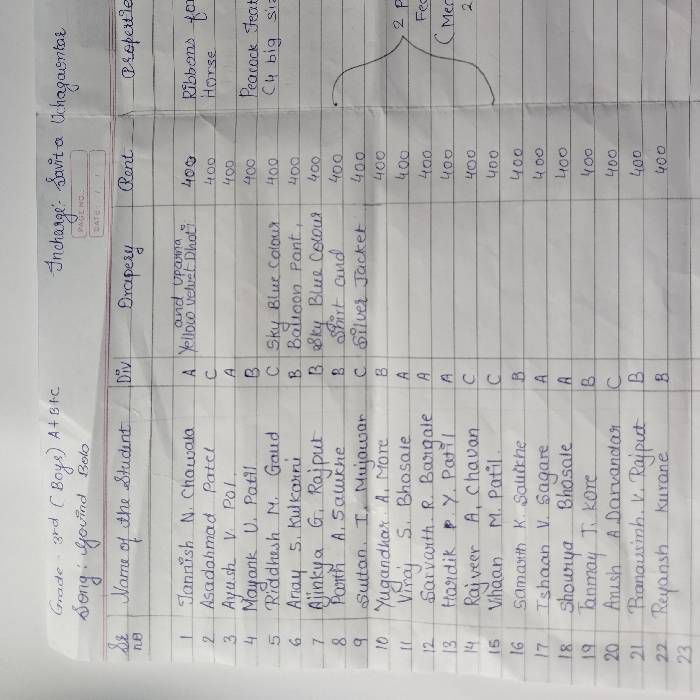 Grade - 3rd (Boys) A+B+C Incharge: Savita Uchagaonkar
Song: Govind Bolo
PAGE NO.
DATE: / /
Sr no Name of the Student Div Drapery Rent Propertie
1 Tannish N. Chawala A Yellow Velvet Dhoti and Uparna 400 Ribbons for Horse
2 Asadahmad Patel C 400
3 Ayush V. Pol. A 400
4 Mayank U. Patil B 400 Peacock Feat
5 Riddhesh M. Gaud C Sky Blue Colour 400 (4 big siz
6 Anay S. Kulkarni B Balloon Pant, 400
7 Ajinkya G. Rajput B Sky Blue Colour 400
8 Parth A. Salokhe B Shirt and 400
9 Sultan I. Mujawar C Silver Jacket 400
10 Yugandhar A. More B 400
11 Viraj S. Bhosale A 400 2 P
12 Sarvanth R. Bargale A 400 Fea
13 Hardik Y. Patil A 400 (Med
14 Rajveer A. Chavan C 400 2
15 Vihaan M. Patil. C 400
16 Samarth K. Salokhe B 400
17 Ishaan V. Sagare A 400
18 Shourya Bhosale A 400
19 Tanmay T. Kore B 400
20 Anush A Darvandar C 400
21 Pranavsinh. V. Rajput B 400
22 Reyansh Kurane B 400
23